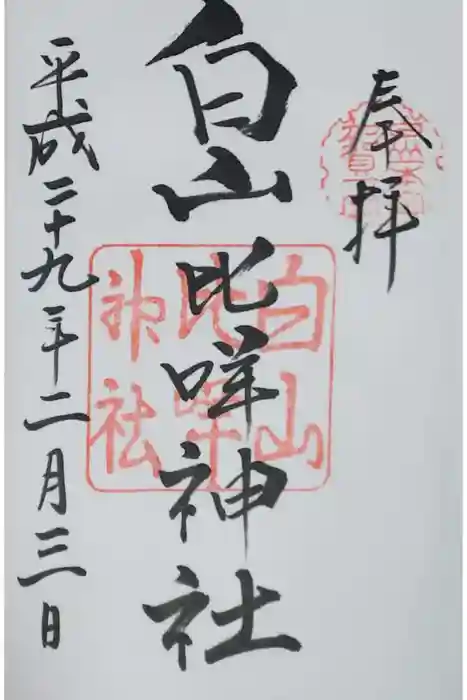 奉拝
白山比咩神社
白山
比咩
神社
平成二十九年二月三日